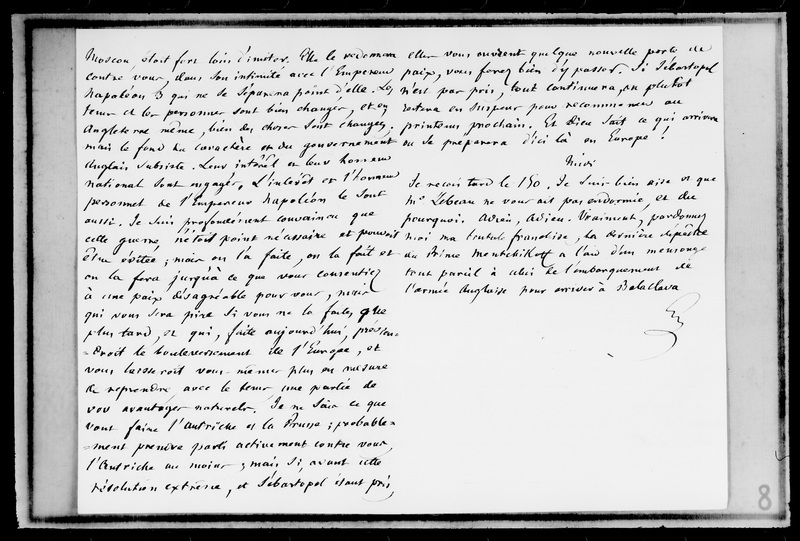 Moscou, étoit fort loin d'imiter. Elle le redonnera
contre vous, dans son intimité avec l'Empereur
Napoléon 3 qui ne se séparera point d'elle. Les
tems et les personnes sont bien changés, et en
Angleterre même, bien des choses sont changées,
mais le fond du caractère et du gouvernement
Anglais subsiste. Leur intérêt et leur honneur
national sont engagés. L'intérêt et l'honneur
personnel de l'Empereur Napoléon le sont
aussi. Je suis profondément convaincu que
cette guerre n'étoit point nécessaire et pouvoit
être évitée ; mais on l'a faite, on la fait et
on la fera jusqu'à ce que vous consentiez
à une paix désagréable pour vous, mais
qui vous sera pire si vous ne la faites que
plus tard, et qui, faite aujourd'hui, prévien-
-droit le bouleversement de l'Europe, et
vous laisseroit vous-mêmes plus en mesure
de reprendre avec le tems une partie de
vos avantages naturels. Je ne sais ce que
vont faire l'Autriche et la Prusse ; probable-
-ment prendre parti activement contre vous,
l'Autriche au moins ; mais si, avant cette
résolution extrême, et Sébastopol étant pris,
elles vous ouvrent quelque nouvelle porte de
paix, vous ferez bien d'y passer. Si Sébastopol
n'est pas pris, tout continuera, ou plutôt
restera en suspens pour recommencer au
printems prochain. Et Dieu sait ce qui arrivera
ou se préparera d'ici là en Europe !
Midi
Je reçois tard le 150. Je suis bien aise que
Mr Lebeau ne vous ait pas endormie, et du
pourquoi. Adieu, Adieu. Vraiment, pardonnez
moi ma brutale franchise, la dernière dépêche
du Prince Mentchikoff a l'air d'un mensonge
tout pareil à celui de l'embarquement de
l'armée Anglaise pour arriver à Balaclava
8